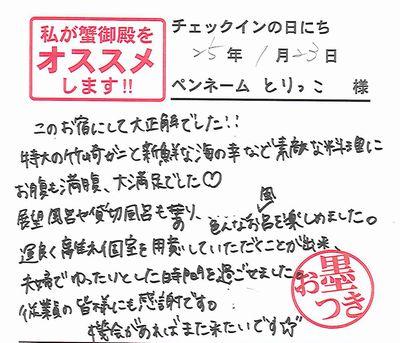 私が蟹御殿を
オススメ
します!!
チェックインの日にち
25年1月23日
ペンネーム とりっこ 様
このお宿にして大正解でした!!
特大の竹崎ガニと新鮮な海の幸など素敵な料理に
お腹も満腹、大満足でした♡
展望風呂や貸切風呂も乗り、色んなお風呂を楽しめました。
運良く離れ個室を用意していただくことが出来、
夫婦でゆったりとした時間を過ごせました。
従業員の皆様にも感謝です。
機会があればまた来たいです☆
お墨つき